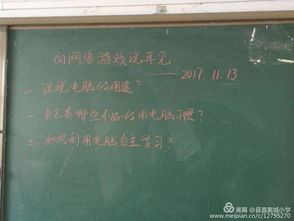 向网络游戏说再见
—— 2017.11.13
一、说说电脑的用途？
二、自己有哪些不好的用电脑习惯？
三、如何利用电脑自主学习？
美篇@县直黄城小学
www.meipian.cn/c/12795270